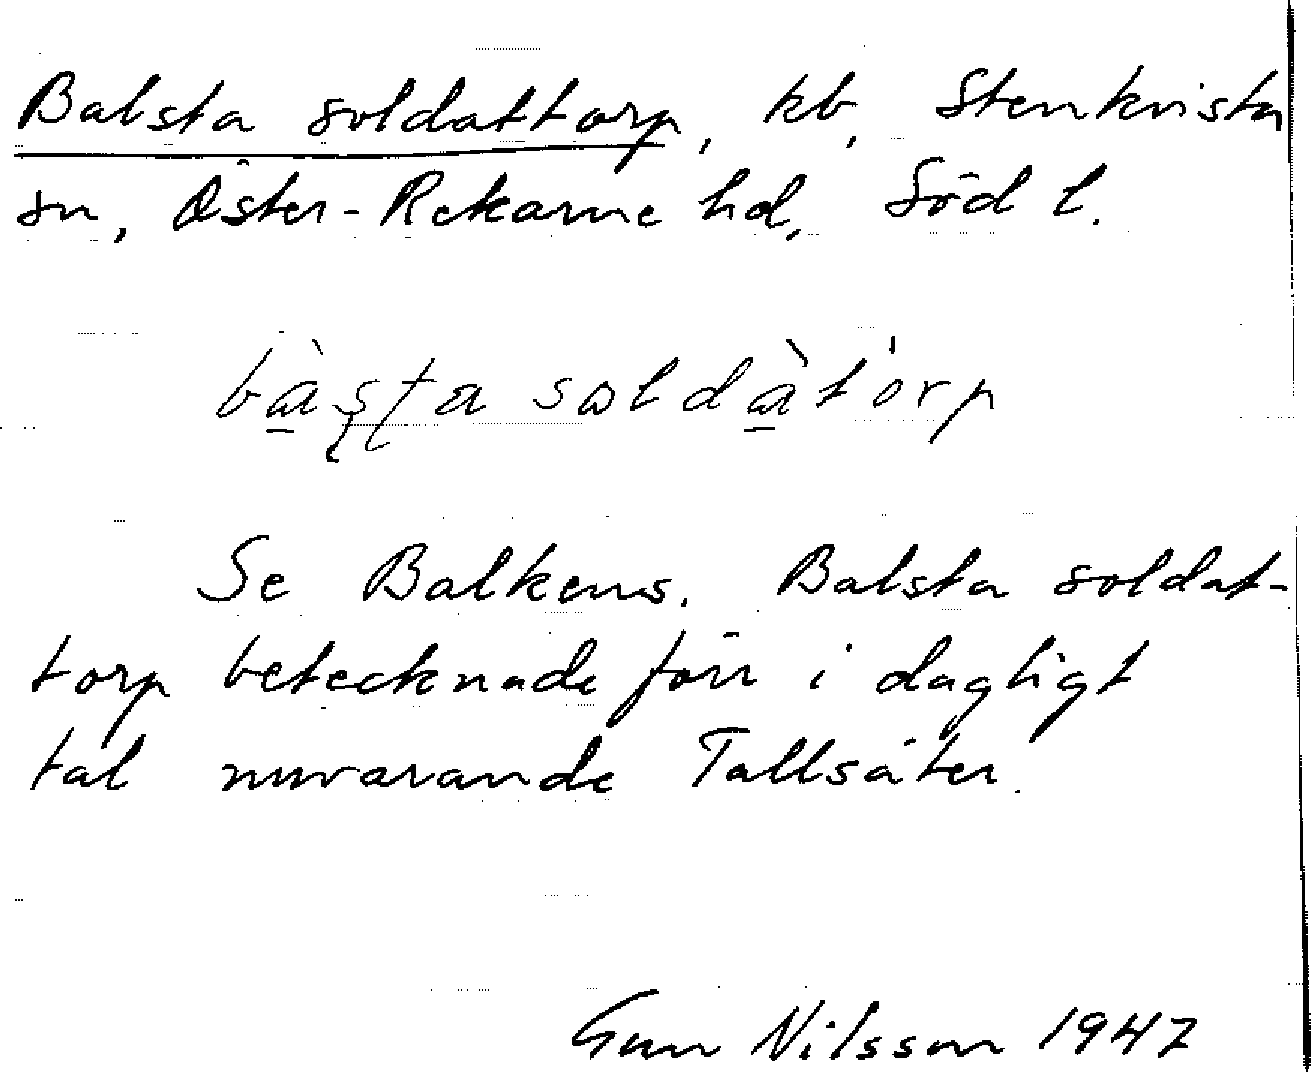 Balsta soldattorp, kb, Stenkvista
sn, Öster-Rekarne hd, Söd l.
bàṣṭa soldàtòrp
Se Balkens. Balsta soldat-
torp betecknade förr i dagligt
tal nuvarande Tallsäter.
Gun Nilsson 1947